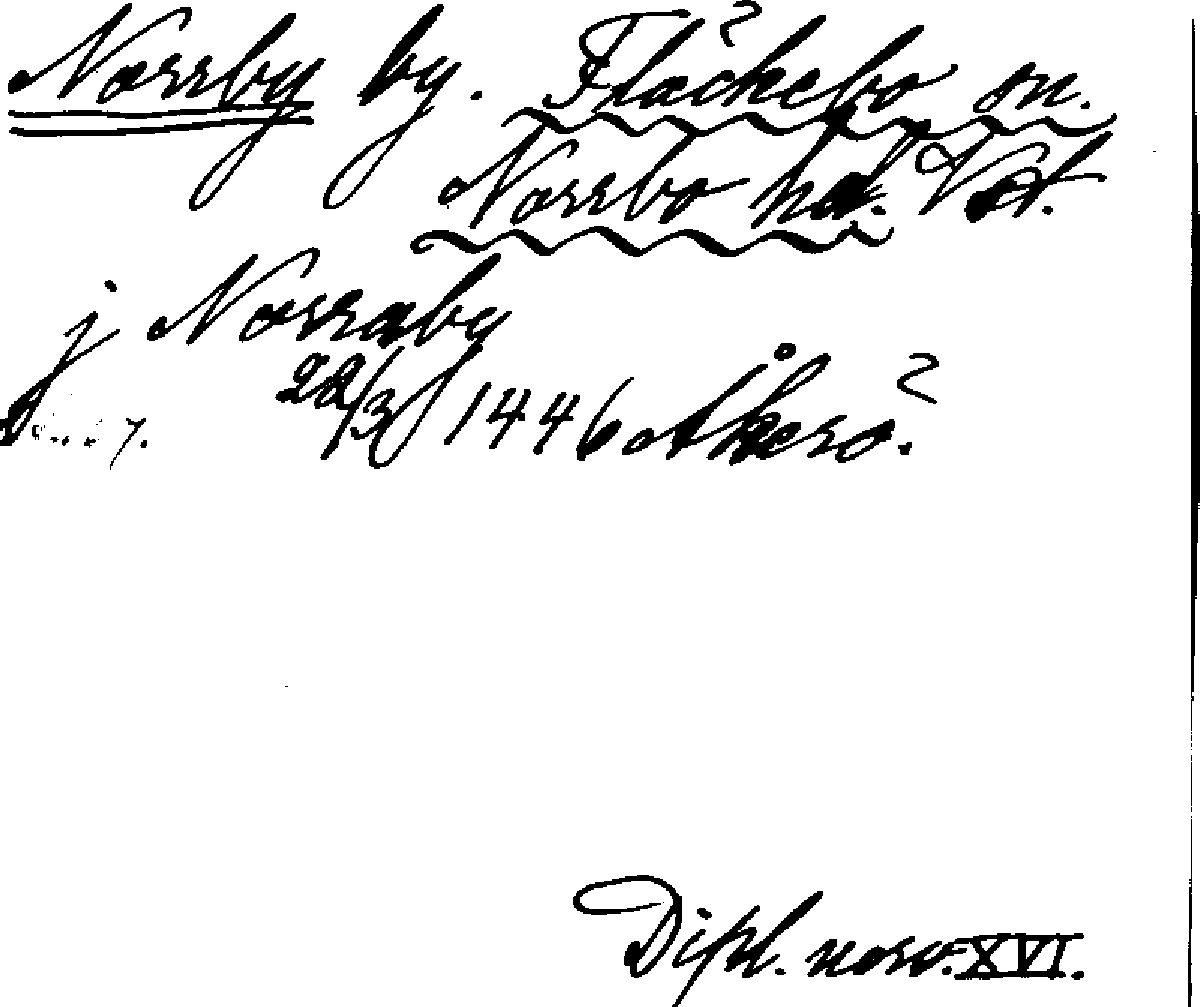 Norrby by. Fläckebo sn.
Norrbo hd. Vstl.
j Norraby
22/3 1446 Åkerö.
Dipl. norv. XVI.